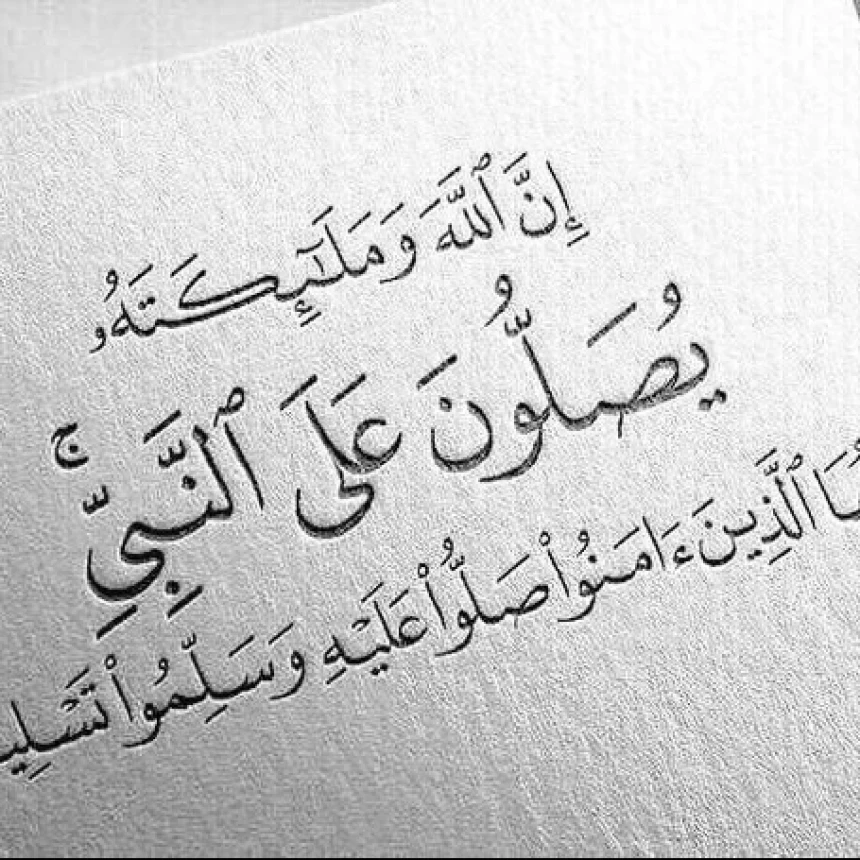 إِنَّ ٱللَّهَ وَمَلَـٰٓئِكَتَهُۥ
يُصَلُّونَ عَلَى ٱلنَّبِيِّ ۚ
ٱلَّذِينَ ءَامَنُوا۟ صَلُّوا۟ عَلَيْهِ وَسَلِّمُوا۟